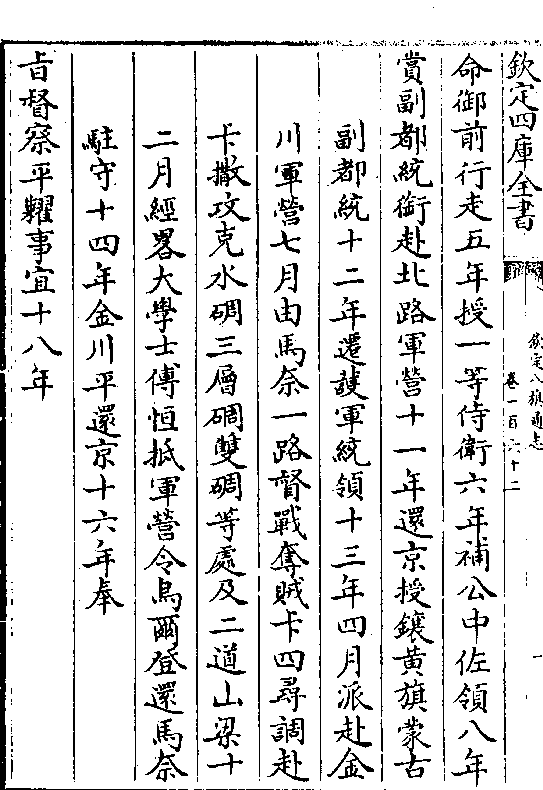 欽定四庫全書
欽定八旗通志
卷一百六十二
一
命御前行走五年授一等侍衛六年補公中佐領八年
賞副都統銜赴北路軍營十一年還京授鑲黃旗蒙古
副都統十二年遷護軍統領十三年四月派赴金
川軍營七月由馬奈一路督戰奪賊卡四尋調赴
卡撒攻克水碉三層碉雙碉等處及二道山梁十
二月經畧大學士傅恒抵軍營令烏爾登還馬奈
駐守十四年金川平還京十六年奉
旨督察平糶事宜十八年